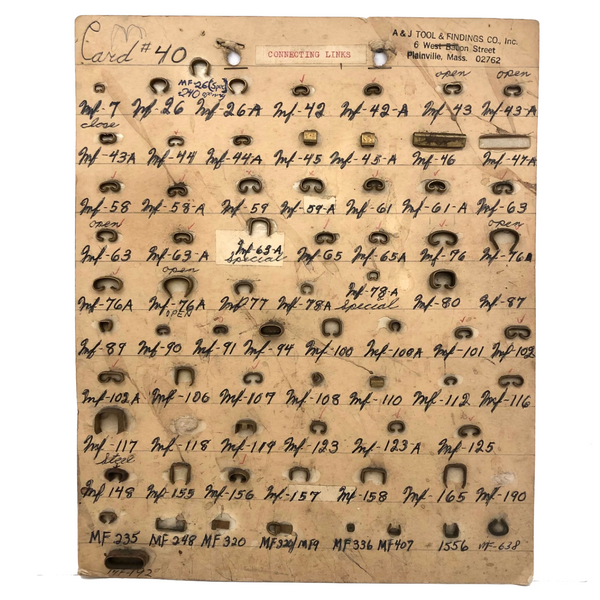 Card #40
CONNECTING LINKS
A & J TOOL & FINDINGS CO., Inc.
6 West Bacon Street
Plainville, Mass. 02762
open open
MF-26
mf-7 mf-26 mf-26-A mf-42 mf-42-A mf-43 mf-43-A
close
mf-43A mf-44 mf-44A mf-45 mf-45-A mf-46 mf-47-A
mf-58 mf-58-A mf-59 mf-59-A mf-61 mf-61-A mf-63
open open
mf-63 mf-63-A mf-63-A mf-65 mf-65A mf-76 mf-76A
special
open
mf-76A mf-76A mf-77 mf-78A mf-78-A mf-80 mf-87
OPEN special
mf-89 mf-90 mf-91 mf-94 mf-100 mf-100A mf-101 mf-102
mf-102A mf-106 mf-107 mf-108 mf-110 mf-112 mf-116
mf-117 mf-118 mf-119 mf-123 mf-123-A mf-125
steel
mf 148 mf-155 mf-156 mf-157 mf-158 mf-165 mf-190
MF 235 MF 248 MF 320 MF 336 MF 407 1556 MF-638